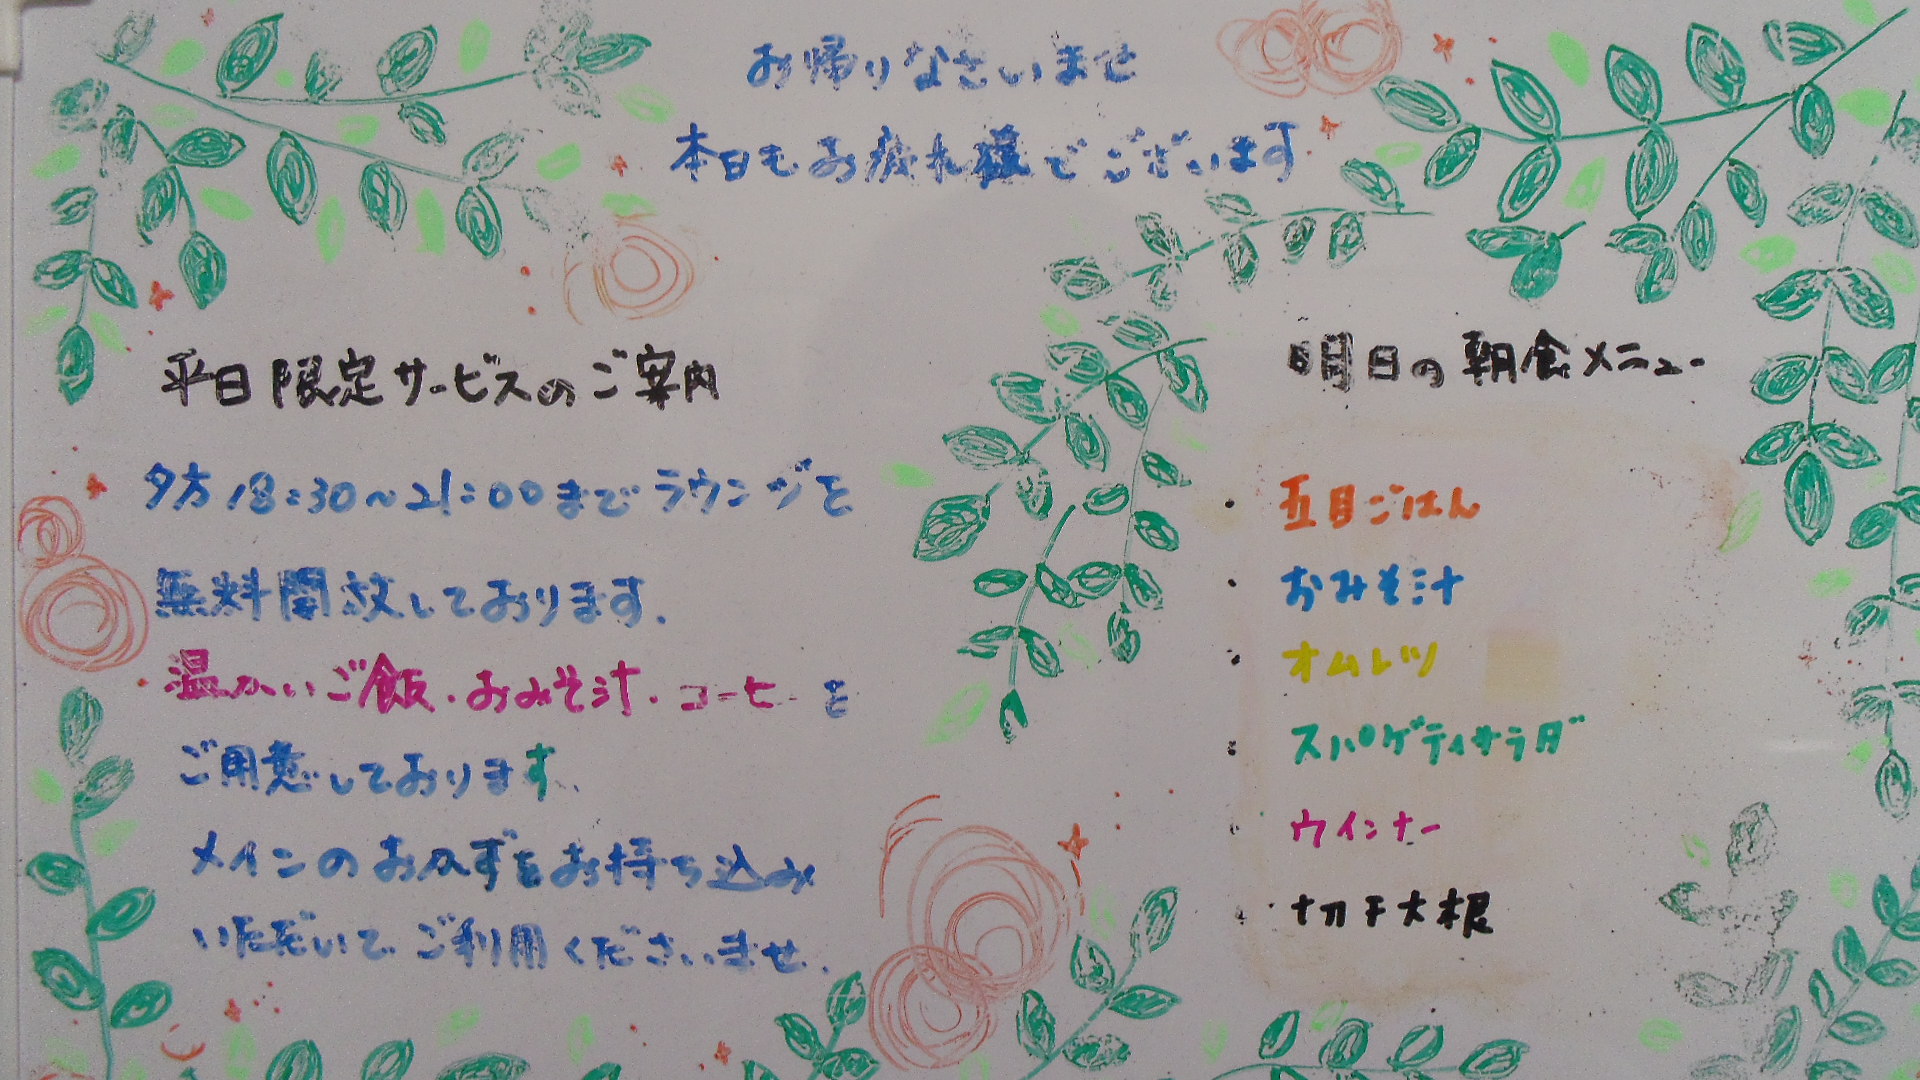 お帰りなさいませ
本日もお疲れ様でございます
平日限定サービスのご案内
夕方18:30～21:00までラウンジを
無料開放しております.
温かいご飯・おみそ汁・コーヒーを
ご用意しております.
メインのおかずをお持ち込み
いただいてご利用くださいませ.
明日の朝食メニュー
・五目ごはん
・おみそ汁
・オムレツ
・スパゲティサラダ
・ウインナー
・切干大根